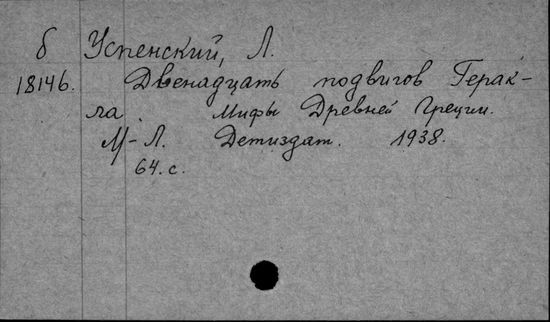 б Успенский, Л.
18146. Двенадцать подвигов Герак-
ла. Мифы Древней Греции.
М-Л. Детиздат. 1938.
64. с.